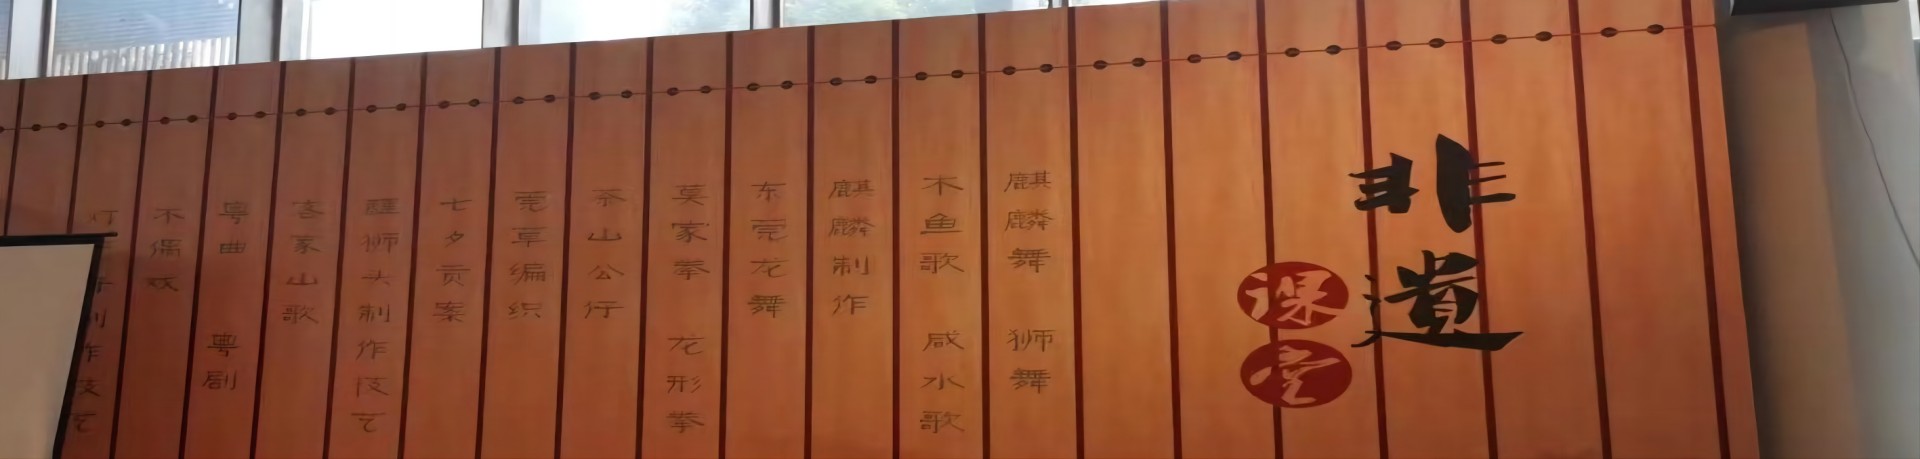 非遗
课堂
麒麟舞 狮舞
木鱼歌 咸水歌
麒麟制作
东莞龙舞
莫家拳 龙形拳
茶山公仔
莞草编织
七夕贡案
醒狮头制作技艺
客家山歌
粤曲 粤剧
木偶戏
制作技艺